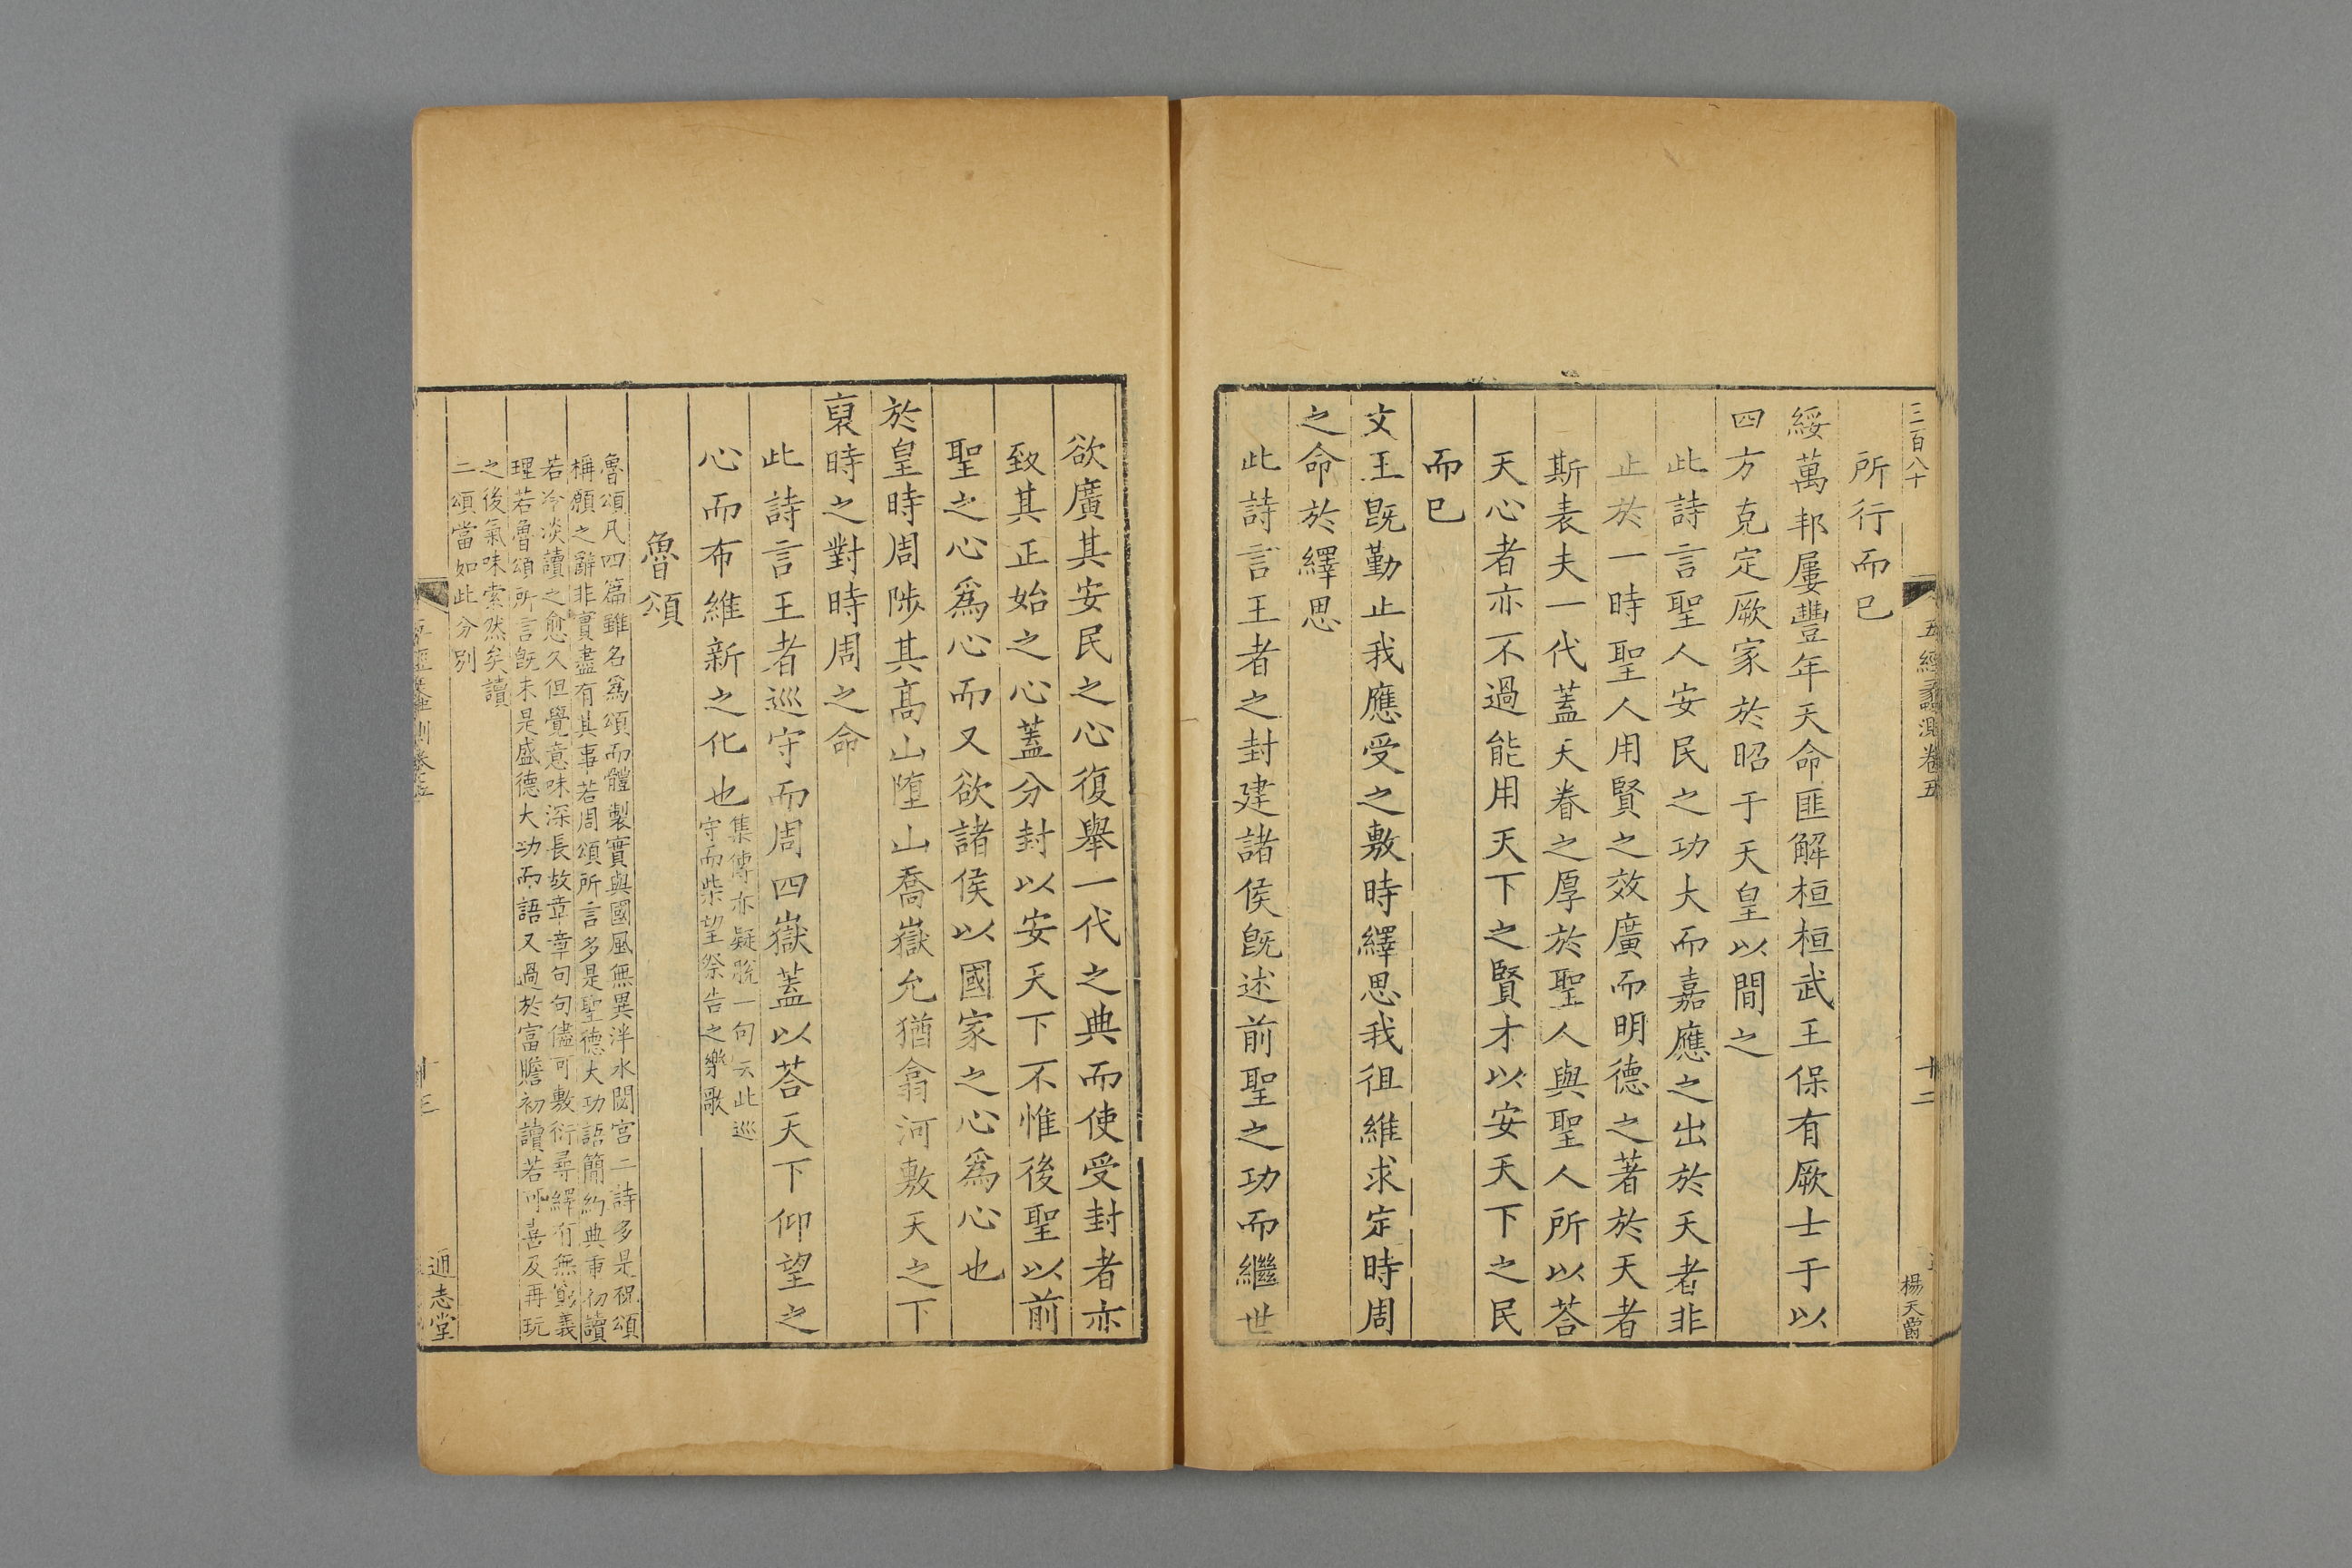 三百八十
五經蠡測卷五
十二
楊天爵
所行而已
綏萬邦屢豐年天命匪解桓桓武王保有厥士于以
四方克定厥家於昭于天皇以間之
此詩言聖人安民之功大而嘉應之出於天者非
止於一時聖人用賢之效廣而明德之著於天者
斯表夫一代蓋天眷之厚於聖人與聖人所以荅
天心者亦不過能用天下之賢才以安天下之民
而已
文王旣勤止我應受之敷時繹思我徂維求定時周
之命於繹思
此詩言王者之封建諸侯旣述前聖之功而繼世
欲廣其安民之心復舉一代之典而使受封者亦
致其正始之心蓋分封以安天下不惟後聖以前
聖之心爲心而又欲諸侯以國家之心爲心也
於皇時周陟其高山墮山喬嶽允猶翕河敷天之下
裒時之對時周之命
此詩言王者巡守而周四嶽蓋以荅天下仰望之
心而布維新之化也
集傳亦疑脫一句云此巡
守而柴望祭告之樂歌
魯頌
魯頌凡四篇雖名爲頌而體製實與國風無異泮水閟宮二詩多是祝頌
稱願之辭非實盡有其事若周頌所言多是聖德大功語簡約典重初讀
若冷淡讀之愈久但覺意味深長故章章句句儘可敷衍尋繹有無窮義
理若魯頌所言旣未是盛德大功而語又過於富贍初讀若可喜及再玩
之後氣味索然矣讀
二頌當如此分別
通志堂